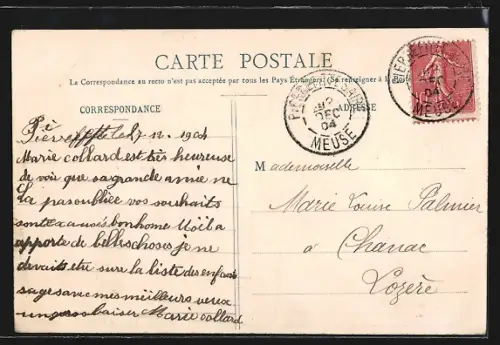 CARTE POSTALE
La Correspondance au recto n'est pas acceptée par tous les Pays Étrangers. (Se renseigner à la
CORRESPONDANCE
ADRESSE
DEC
04
MEUSE
DEC
04
MEUSE
27-12-1904
Marie collard est très heureuse
de voir que sa grande amie ne
la pas oubliée vos souhaits
bonhome Noël a
apporté de belles choses je ne
devait être sur la liste des enfants
sage avec mes meilleurs vœux
un gros baiser Marie collard
Mademoiselle
Marie Louise Palmier
à Chanac
Lozère